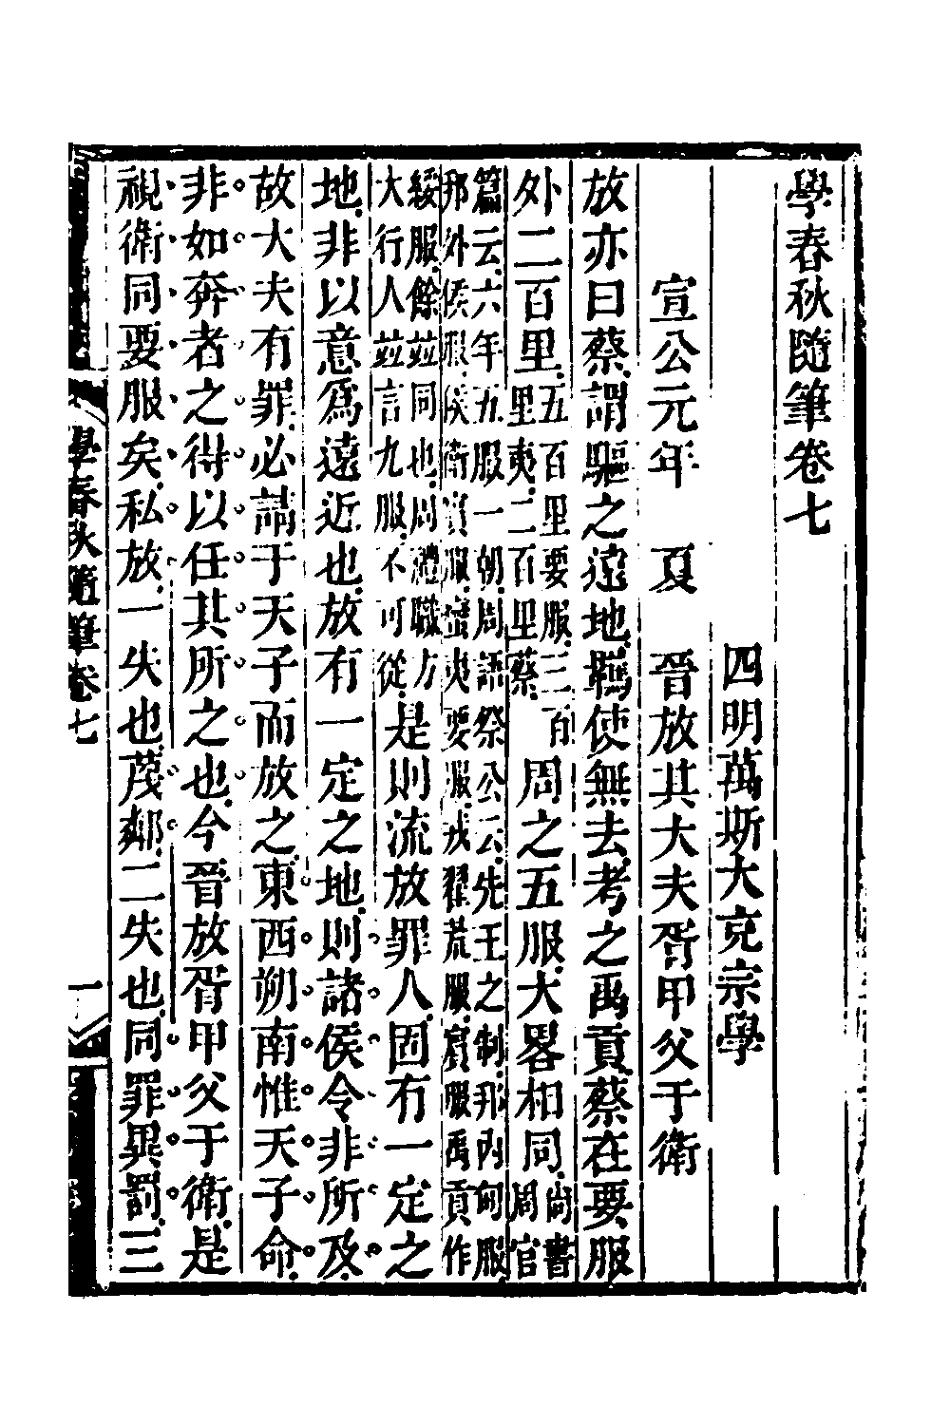 學春秋隨筆卷七
四明萬斯大充宗學
宣公元年　夏　晉放其大夫胥甲父于衛
放亦曰蔡謂驅之遠地羈使無去考之禹貢蔡在要服
外二百里五百里要服三百里夷二百里蔡周之五服大畧相同尚書周官
篇云六年五服一朝周語祭公云先王之制邦內甸服
邦外侯服侯衛賓服蠻夷要服戎翟荒服賓服禹貢作
綏服餘並同也周禮職方
大行人並言九服不可從是則流放罪人固有一定之
地非以意爲遠近也放有一定之地則諸侯令非所及
故大夫有罪必請于天子而放之東西朔南惟天子命
非如奔者之得以任其所之也今晉放胥甲父于衛是
視衛同要服矣私放一失也茂鄰二失也同罪異罰三
學春秋隨筆卷七
一